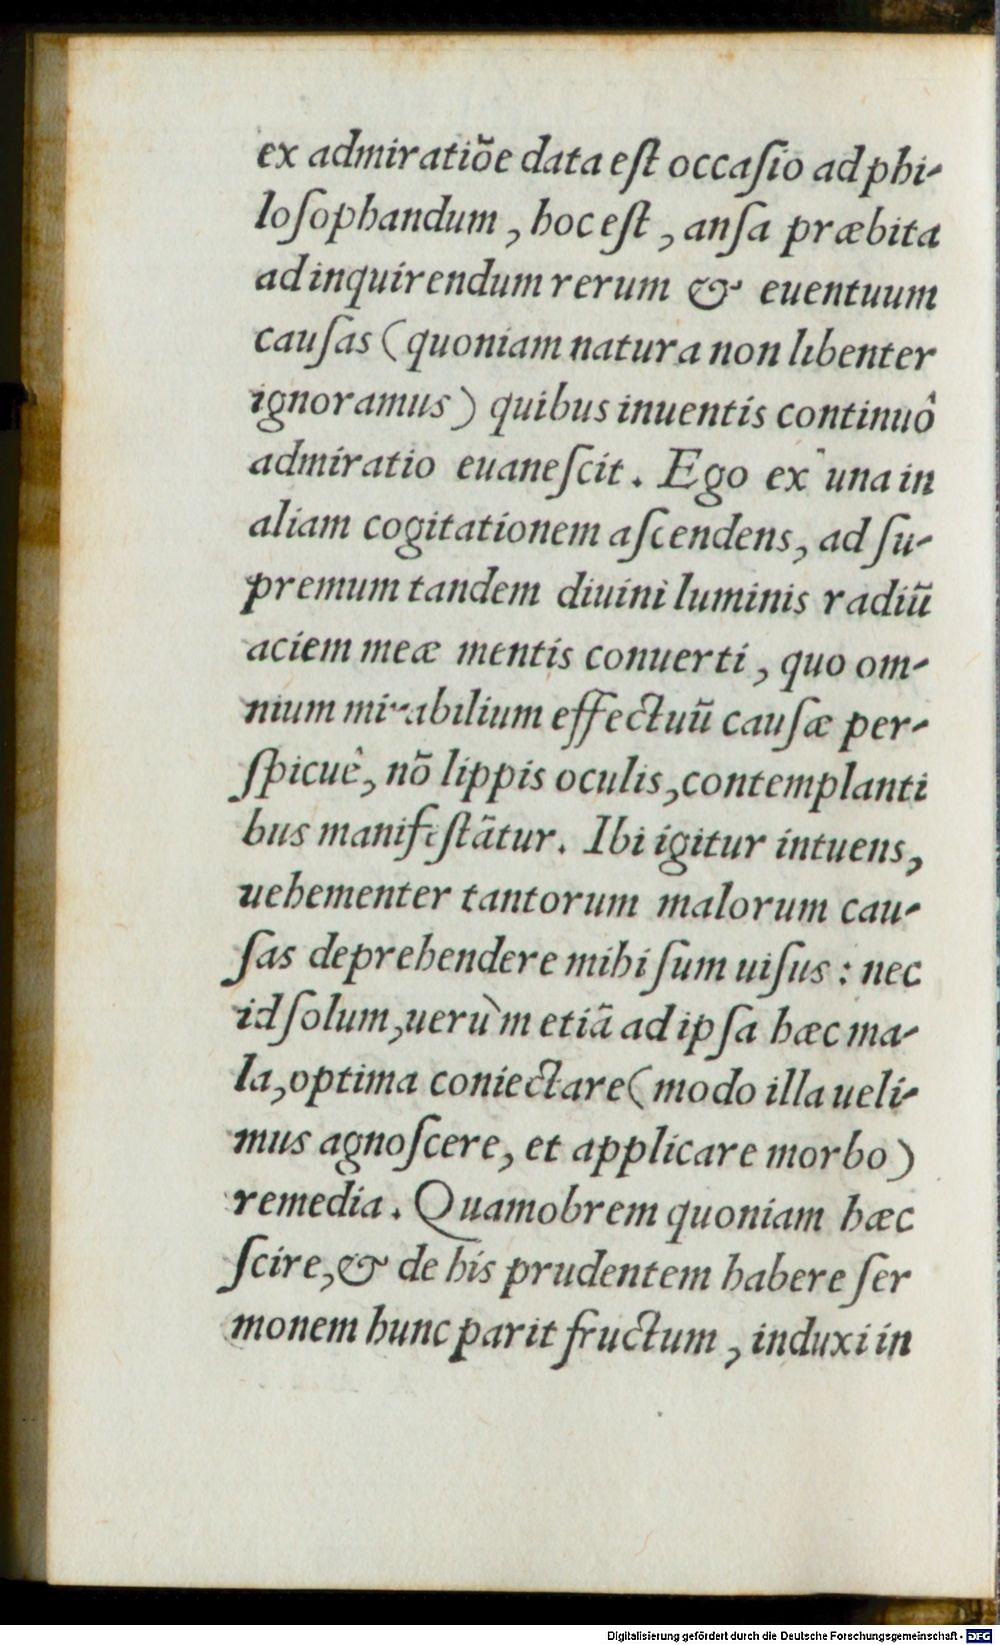 ex admiratiõe data eſt occaſio ad phi-
loſophandum, hoc eſt, anſa præbita
ad inquirendum rerum & euentuum
cauſas (quoniam natura non libenter
ignoramus) quibus inuentis continuô
admiratio euaneſcit. Ego ex una in
aliam cogitationem aſcendens, ad ſu-
premum tandem diuini luminis radiũ
aciem meæ mentis conuerti, quo om-
nium mirabilium effectuũ cauſæ per-
ſpicuê, nõ lippis oculis, contemplanti
bus manifeſtãtur. Ibi igitur intuens,
uehementer tantorum malorum cau-
ſas deprehendere mihi ſum uiſus: nec
id ſolum, uerùm etiã ad ipſa hæc ma-
la, optima coniectare (modo illa ueli-
mus agnoſcere, et applicare morbo)
remedia. Quamobrem quoniam hæc
ſcire, & de his prudentem habere ſer
monem hunc parit fructum, induxi in
Digitalisierung gefördert durch die Deutsche Forschungsgemeinschaft - DFG